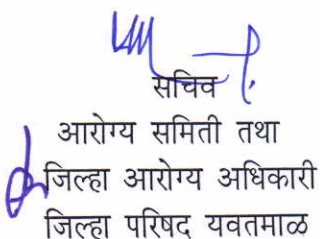 सचिव
आरोग्य समिती तथा
जिल्हा आरोग्य अधिकारी
जिल्हा परिषद यवतमाळ